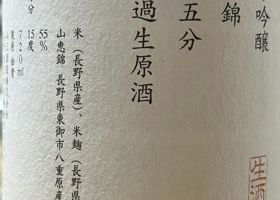 吟醸
錦
五分
過生原酒
米(長野県産)、米麹(長野県
山恵錦(長野県東御市八重原産
55%
15度
720ml
生酒